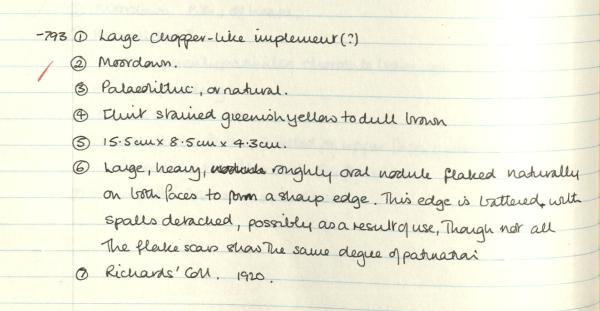 -793 ① Large chopper-like implement(?)
② Moordown.
③ Palaeolithic, or natural.
④ Flint stained greenish yellow to dull brown
⑤ 15.5cm x 8.5cm x 4.3cm.
⑥ Large, heavy, roughly oval nodule flaked naturally
on both faces to form a sharp edge. This edge is battered, with
spalls detached, possibly as a result of use, Though not all
The flake scars show The same degree of patination
⑦ Richards' Coll. 1920.